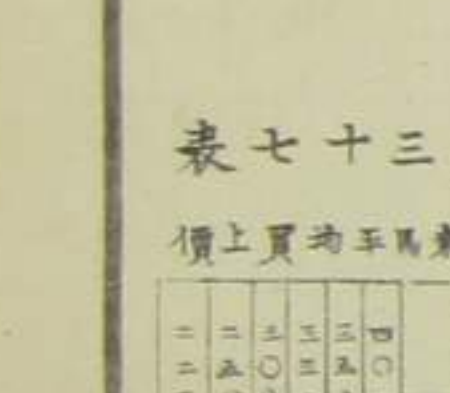 三十七表
馬平均買上價
四〇
三五
三三
三〇
二五
二二